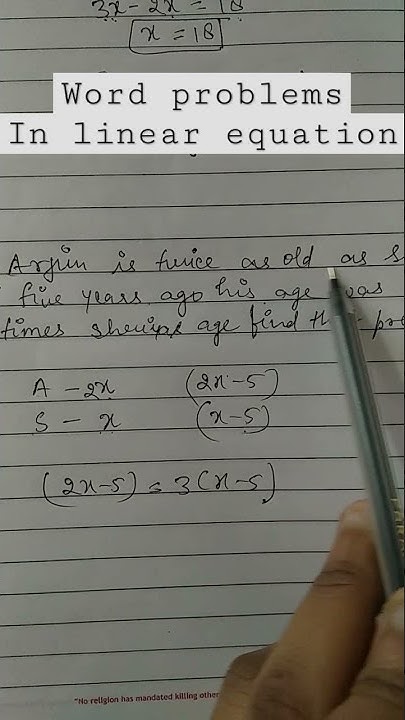 3x - 2x = 18
x = 18
Word problems
In linear equation
Arjun is twice as old as S
five years ago his age was
times age find the
A - 2x (2x-5)
S - x (x-5)
(2x-5) = 3(x-5)
"No religion has mandated killing other